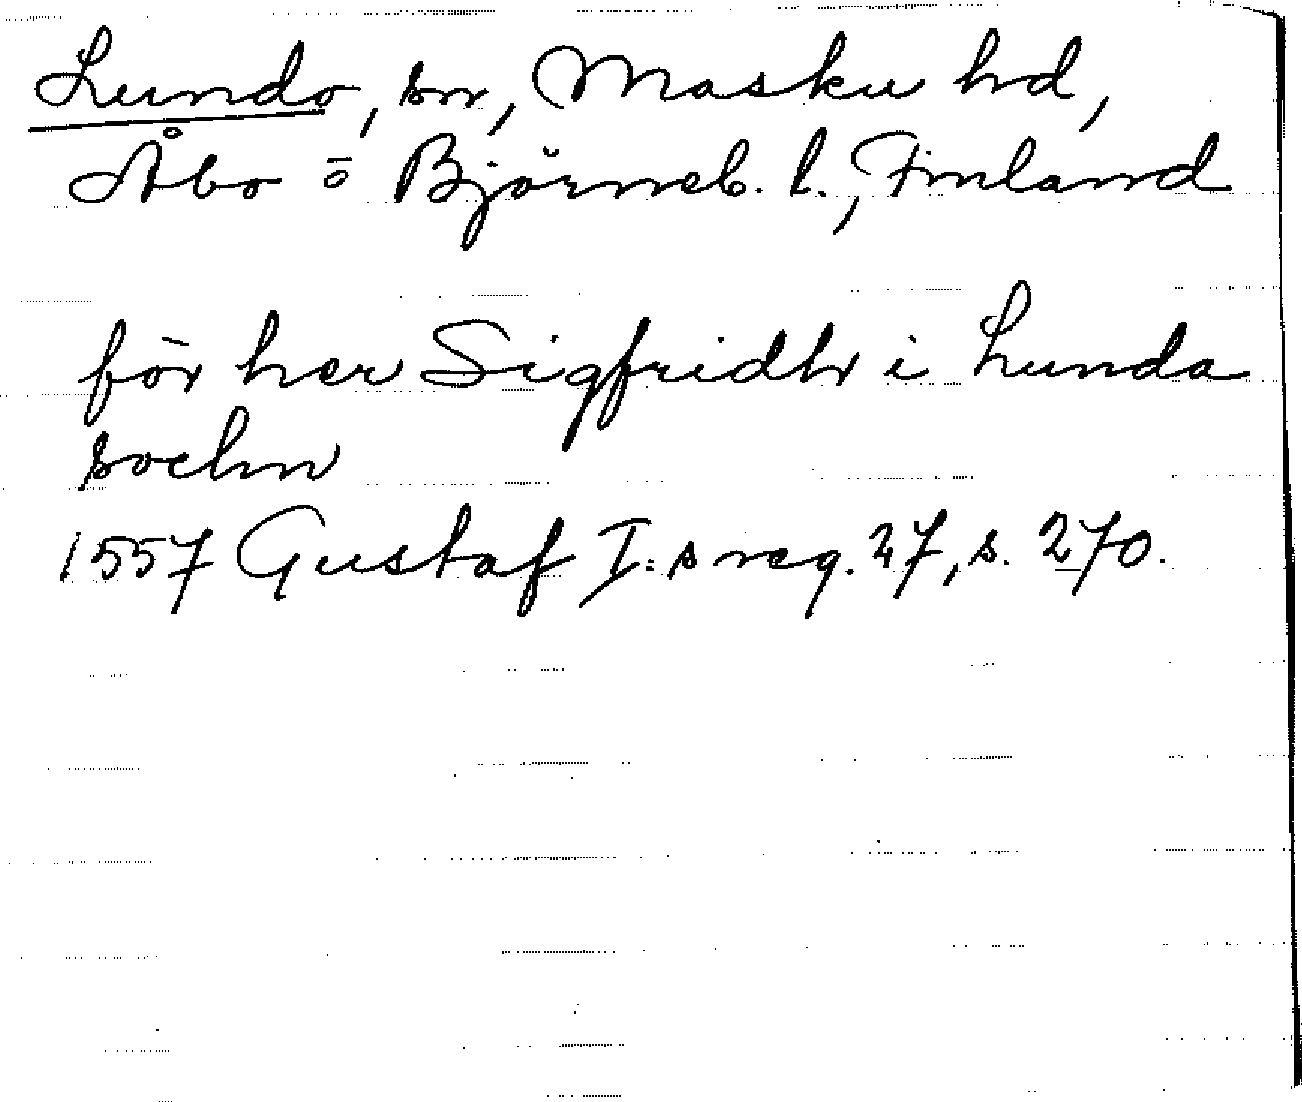 Lundo, sn, Masku hd,
Åbo o Björneb. l., Finland
för her Sigfridh i Lunda
sochn
1557 Gustaf I:s reg. 27, s. 270.